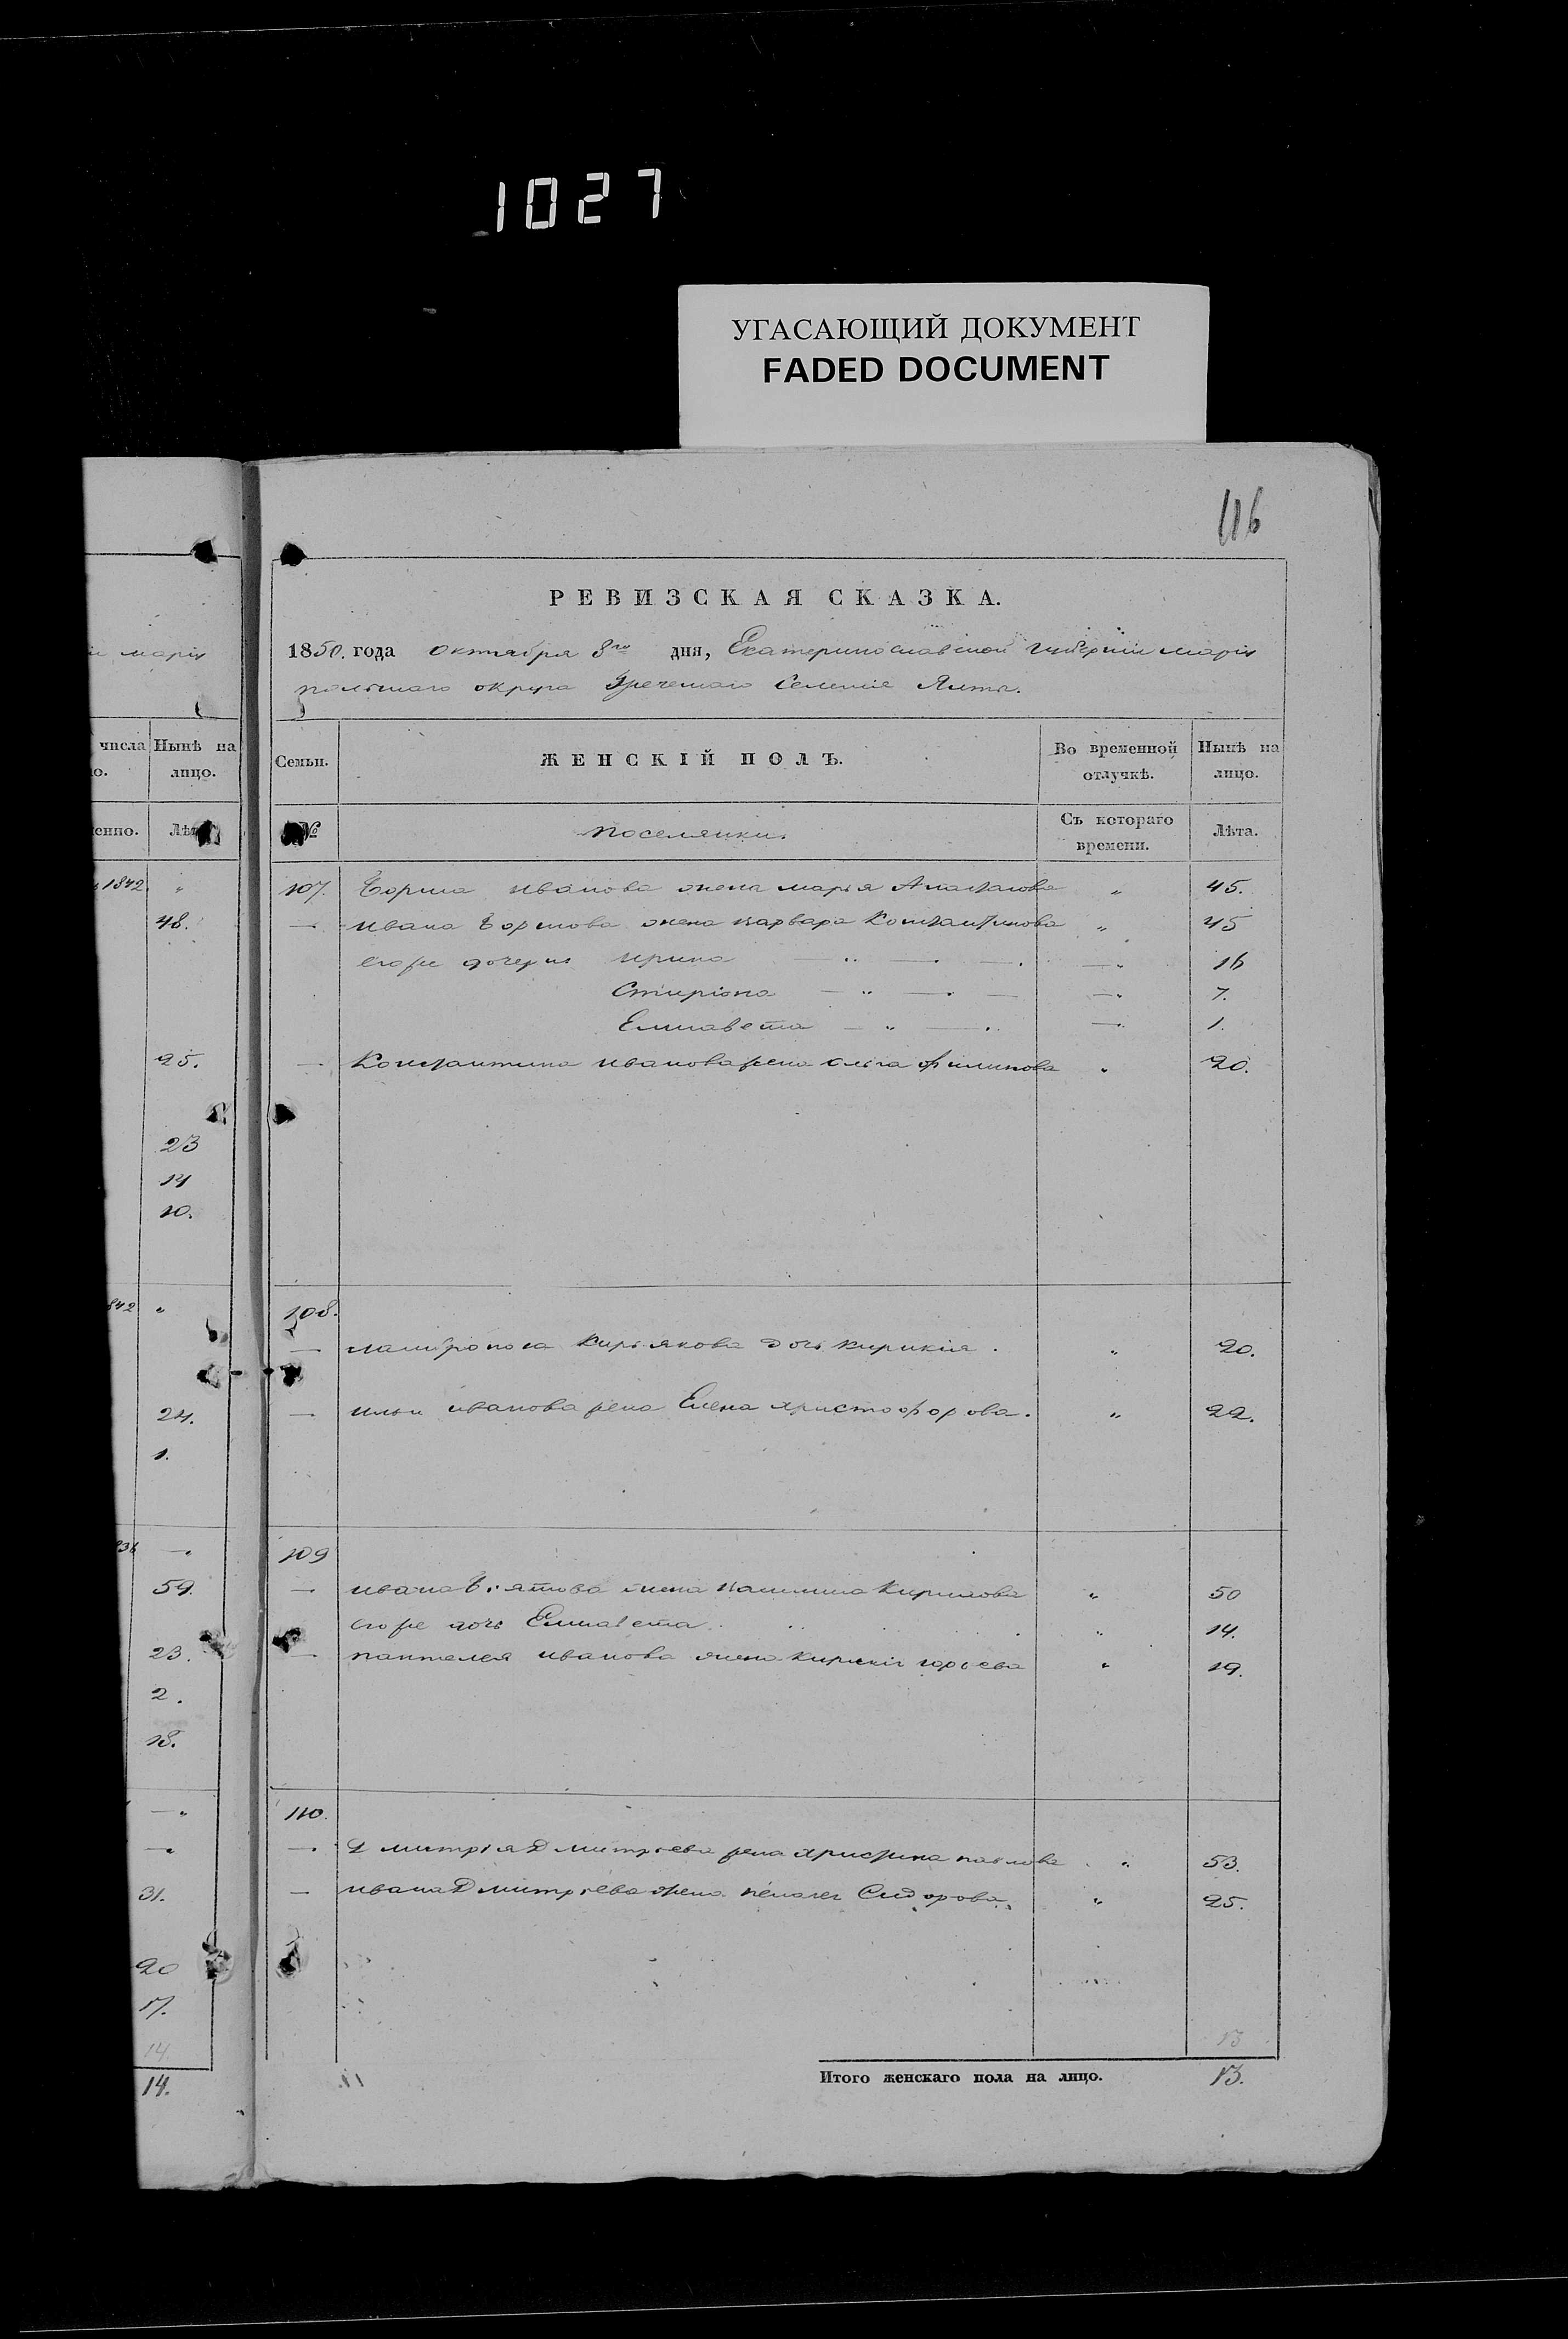 1027
УГАСАЮЩИЙ ДОКУМЕНТ
FADED DOCUMENT
116
РЕВИЗСКАЯ СКАЗКА.
1850. года октября 8го дня, Екатеринославской губернии марiу
польскаго округа Греческаго Селенiе Ялта.
числа Нынѣ на лицо.
Лѣта
1842 "
48.
25.
23
14
10.
842 "
24.
1.
836 —"
59.
23.
2.
18.
—"
—"
31.
20
17.
14.
14.
Семьи. ЖЕНСКІЙ ПОЛЪ. Во временной отлучкѣ. Нынѣ на лицо.
№ поселянки. Съ котораго времени. Лѣта.
107. иванова жена марья " 45.
— ивана жена варвара Константинова " 45
его же дочери ирина — " — . — . —" 16
— " — . — —" 7.
Елисавета — " — . —" 1.
— Константина иванова жена ольга филипова " 20.
108.
— Кирьякова дочь кирикiя . " 20.
— ильи иванова жена Елена христофорова. " 22.
109
— ивана жена Кирилова " 50
его же дочь Елисавета " 14.
— пантелея иванова жена юрьева " 19.
110.
— Дмитрiя Дмитрiева жена христина павлова " 53.
— ивана Дмитрiева жена Сидорова. " 25.
13
Итого женскаго пола на лицо. 13.